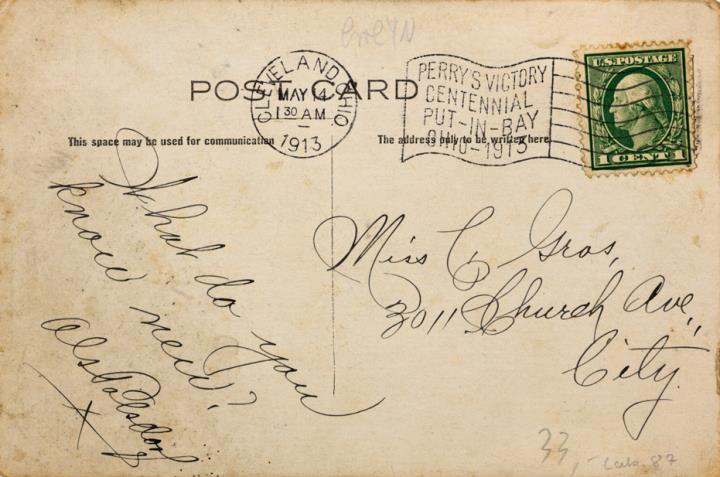 POST CARD
CLEVELAND OHIO
MAY 14
1 30 AM
1913
PERRY'S VICTORY
CENTENNIAL
PUT-IN-BAY
OHIO-1913
U.S. POSTAGE
1 CENT 1
This space may be used for communication
The address only to be written here.
What do you
know need?
Miss C Gros,
3011 Church Ave,
City.
33,-